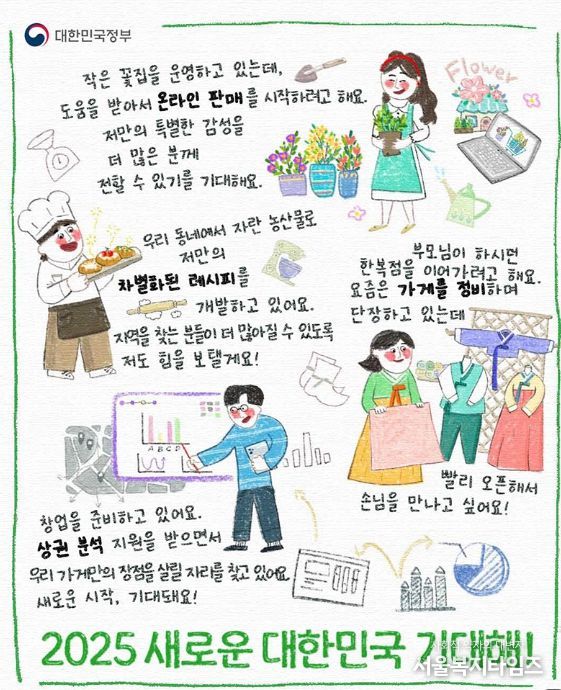 대한민국정부
작은 꽃집을 운영하고 있는데,
도움을 받아서 온라인 판매를 시작하려고 해요.
저만의 특별한 감성을
더 많은 분께
전할 수 있기를 기대해요.
Flower
우리 동네에서 자란 농산물로
저만의
차별화된 레시피를
개발하고 있어요.
지역을 찾는 분들이 더 많아질 수 있도록
저도 힘을 보탤게요!
부모님이 하시던
한복점을 이어가려고 해요.
요즘은 가게를 정비하며
단장하고 있는데
빨리 오픈해서
손님을 만나고 싶어요!
A B C D
창업을 준비하고 있어요.
상권 분석 지원을 받으면서
우리 가게만의 장점을 살릴 자리를 찾고 있어요
새로운 시작, 기대돼요!
2025 새로운 대한민국 기대해!
서울복지타임즈